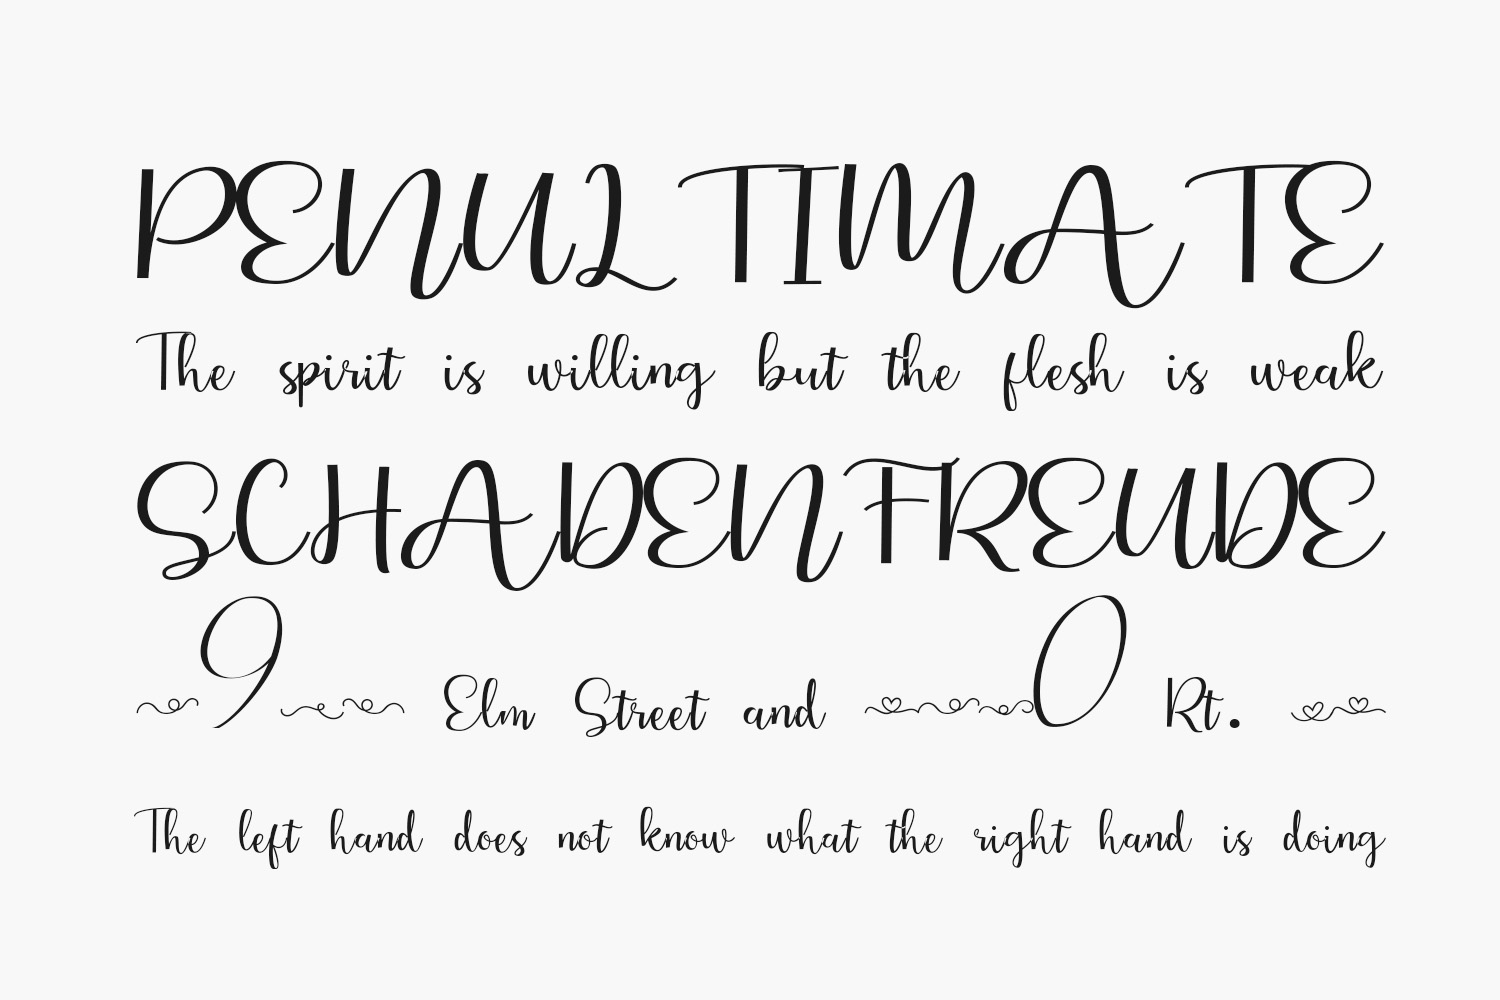 PENULTIMATE
The spirit is willing but the flesh is weak
SCHADENFREUDE
9 Elm Street and 0 Rt.
The left hand does not know what the right hand is doing